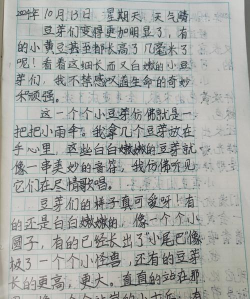 10月13日 星期天 天气晴
豆芽们变得更加明显了,有
的小黄豆甚至都长高了几毫米了
呢!看看这细长而又白嫩的小豆
芽们,我不禁感叹道生命的奇妙
和顽强。
这一个个小豆芽仿佛就是一
把把小雨伞。我拿几个豆芽放在
手心里,这些白白嫩嫩的豆芽就
像一串美妙的音符,我仿佛听见
它们在尽情歌唱。
豆芽们的样子真可爱呀!有
的还是白白嫩嫩的,像一个个小
圆子,有的已经长出了小尾巴像
极了一个个小怪兽,还有的豆芽
长的更高,更大。直直的站在那